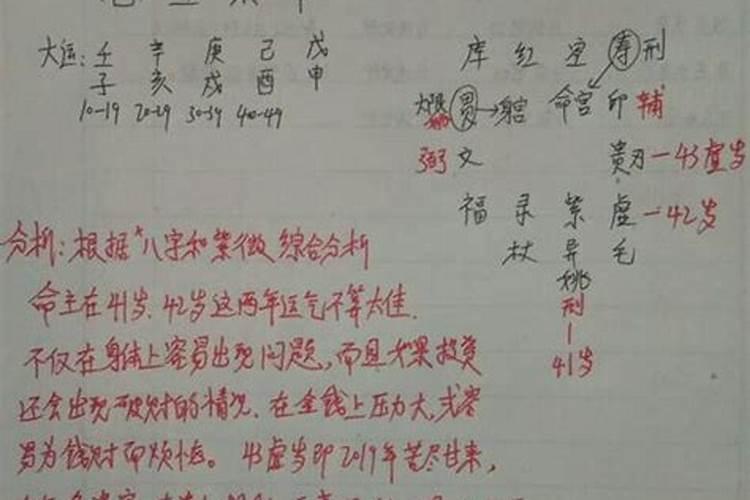 大运：壬 辛 庚 己 戊
子 亥 戌 酉 申
10-19 20-29 30-39 40-49
库 红 空 寿 刑
大限 贯→ 命宫 印 辅
弼 文 贵 刃-43虚岁
福 录 紫 虚-42岁
杖 异 毛
姚
刑
41岁
分析：根据"八字和紫微综合分析
命主在41岁、42岁这两年运气不算太佳.
不仅在身体上容易出现问题，而且如果投资
还会出现破财的情况、在金钱上压力大，或容
易为钱财而烦恼。43虚岁即2019年苦尽甘来，